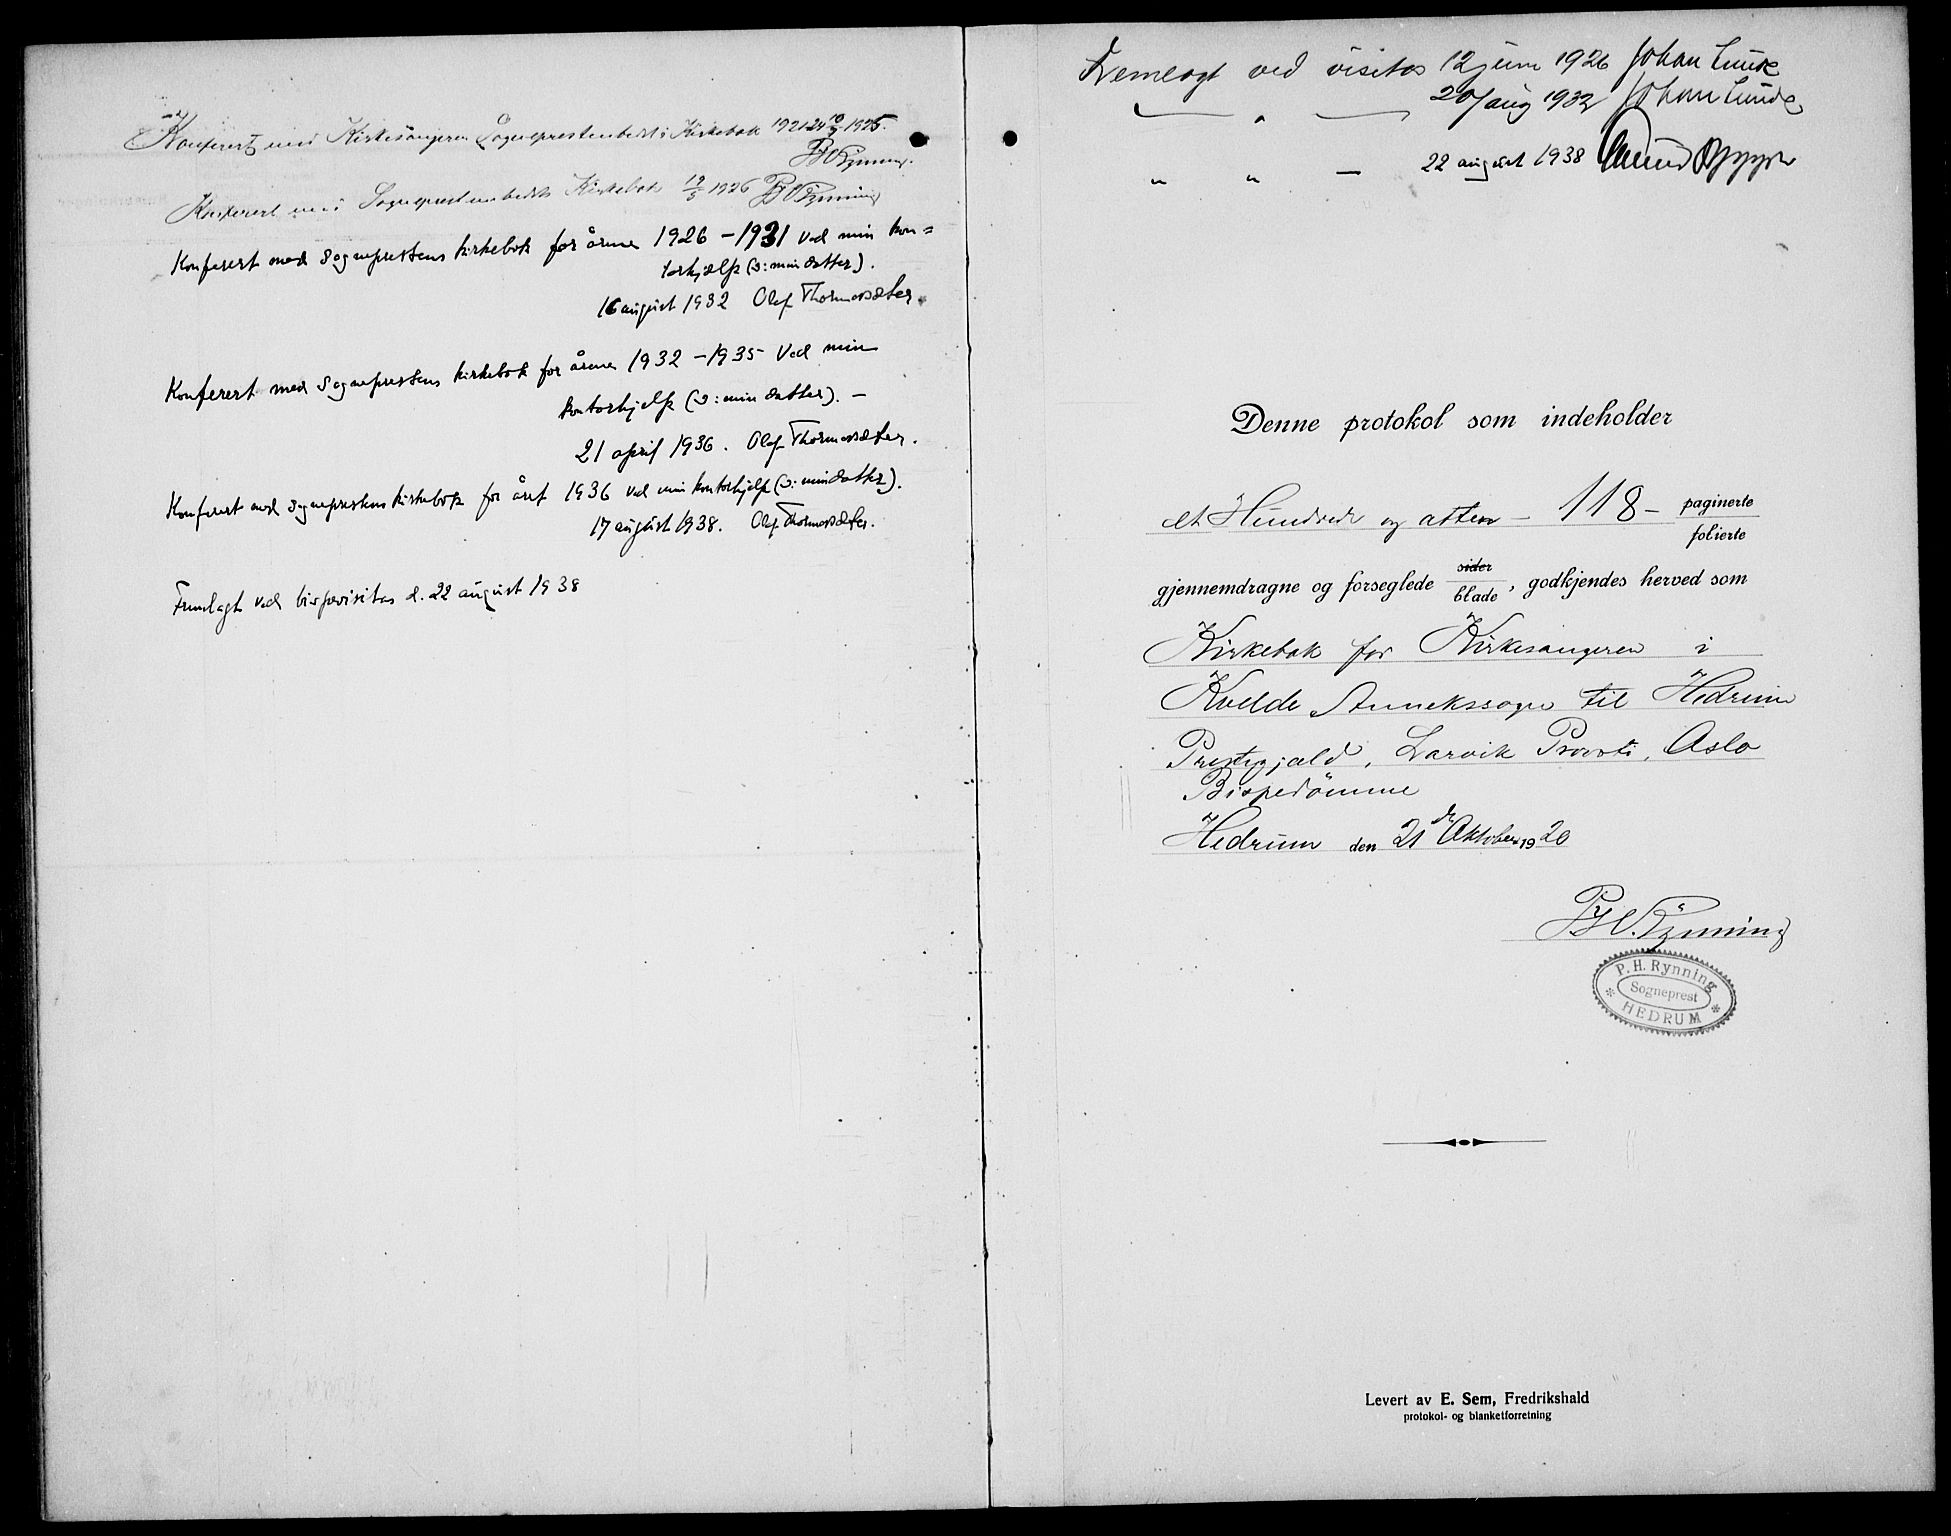 Konferert med Kirkesangeren Sogneprestembedets Kirkebok 1921-24 10/3 1925.
PHRynning.
Konferert med Sogneprestembedets Kirkebok 19/5 1926 PHRynning
Konferert med Sogneprestens kirkebok for årene 1926 - 1931 ved min kon=
torhjælp (ɔ: min datter).
16 august 1932 Olaf Thormodsæter.
Konferert med Sogneprestens kirkebok for årene 1932 - 1935 ved min
kontorhjelp (ɔ: min datter). -
21 april 1936. Olaf Thormodsæter.
Konferert med sogneprestens kirkebok for året 1936 ved min kontorhjelp (ɔ: min datter).
17 august 1938. Olaf Thormodsæter.
Fremlagt ved bispevisitas d. 22 august 1938
Fremlagt ved visitas 12 juni 1926 Johan Lunde
— " — 20/aug 1932 Johan Lunde
" " — 22 august 1938
Denne protokol som indeholder
et Hundrede og atten - 118 - paginerte
folierte
gjennemdragne og forseglede sider
blade, godkjendes herved som
Kirkebok for Kirkesangeren i
Kvelde Annekssogn til Hedrum
Prestegjæld, Larvik Provsti, Oslo
Bispedömme
Hedrum den 21de Oktober 1920
P.H.Rynning
P. H. Rynning
Sogneprest
* HEDRUM *
Levert av E. Sem, Fredrikshald
protokol- og blanketforretning